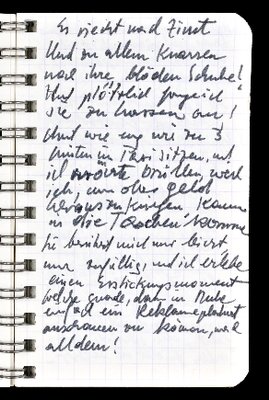 Es riecht nach Zimt
Und zu allem Knarren
noch ihre blöden Schuhe!
Und plötzlich fange ich
sie zu hassen an!
Und wie eng wir zu 3
hinten im Taxi sitzen, und
ich möchte brüllen, weil
ich, um das Geld
herauszukriegen, kaum
in die Taschen komme
sie berührt mich nur leicht
nur zufällig, und ich erlebe
einen Erstickungsmoment
welche Gnade, dann in Ruhe
einfach ein Reklameplakat
anschauen zu können, nach
alldem!